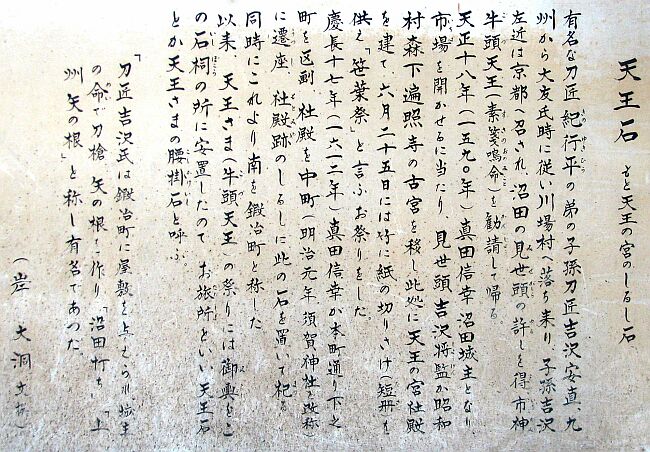 天王石 もと天王の宮のしるし石
有名な刀匠紀行平の弟の子孫刀匠吉沢安直、九
州から大友氏時に従い川場村へ落ち来り、子孫吉沢
左近は京都へ召され、沼田の見世頭の許しを得、市神
牛頭天王(素箋嗚命)を勧請して帰る
天正十八年(一五九〇年)真田信幸沼田城主となり、
市場を開かせるに当たり、見世頭吉沢将監が昭和
村森下遍照寺の古宮を移し此処に天王の宮社殿
を建て六月二十五日には竹に紙の切りさげ、短冊を
供え「笹葉祭」と言ふお祭りをした
慶長十七年(一六一二年)真田信幸が本町通り下之
町を区劃、社殿を中町(明治元年須賀神社と改称)
に遷座、社殿跡のしるしに此の一石を置いて祀る
同時にこれより南を鍛冶町と称した
以来、天王さま(牛頭天王)の祭りには御輿をこ
の石祠の所に安置したので、お旅所といい天王石
とか天王さまの腰掛石と呼ぶ
「刀匠吉沢氏は鍛冶町に屋敷を与えられ城主
の命で刀槍、矢の根を作り「沼田打ち」「上
州矢の根」と称し有名であつた
(岸 大洞